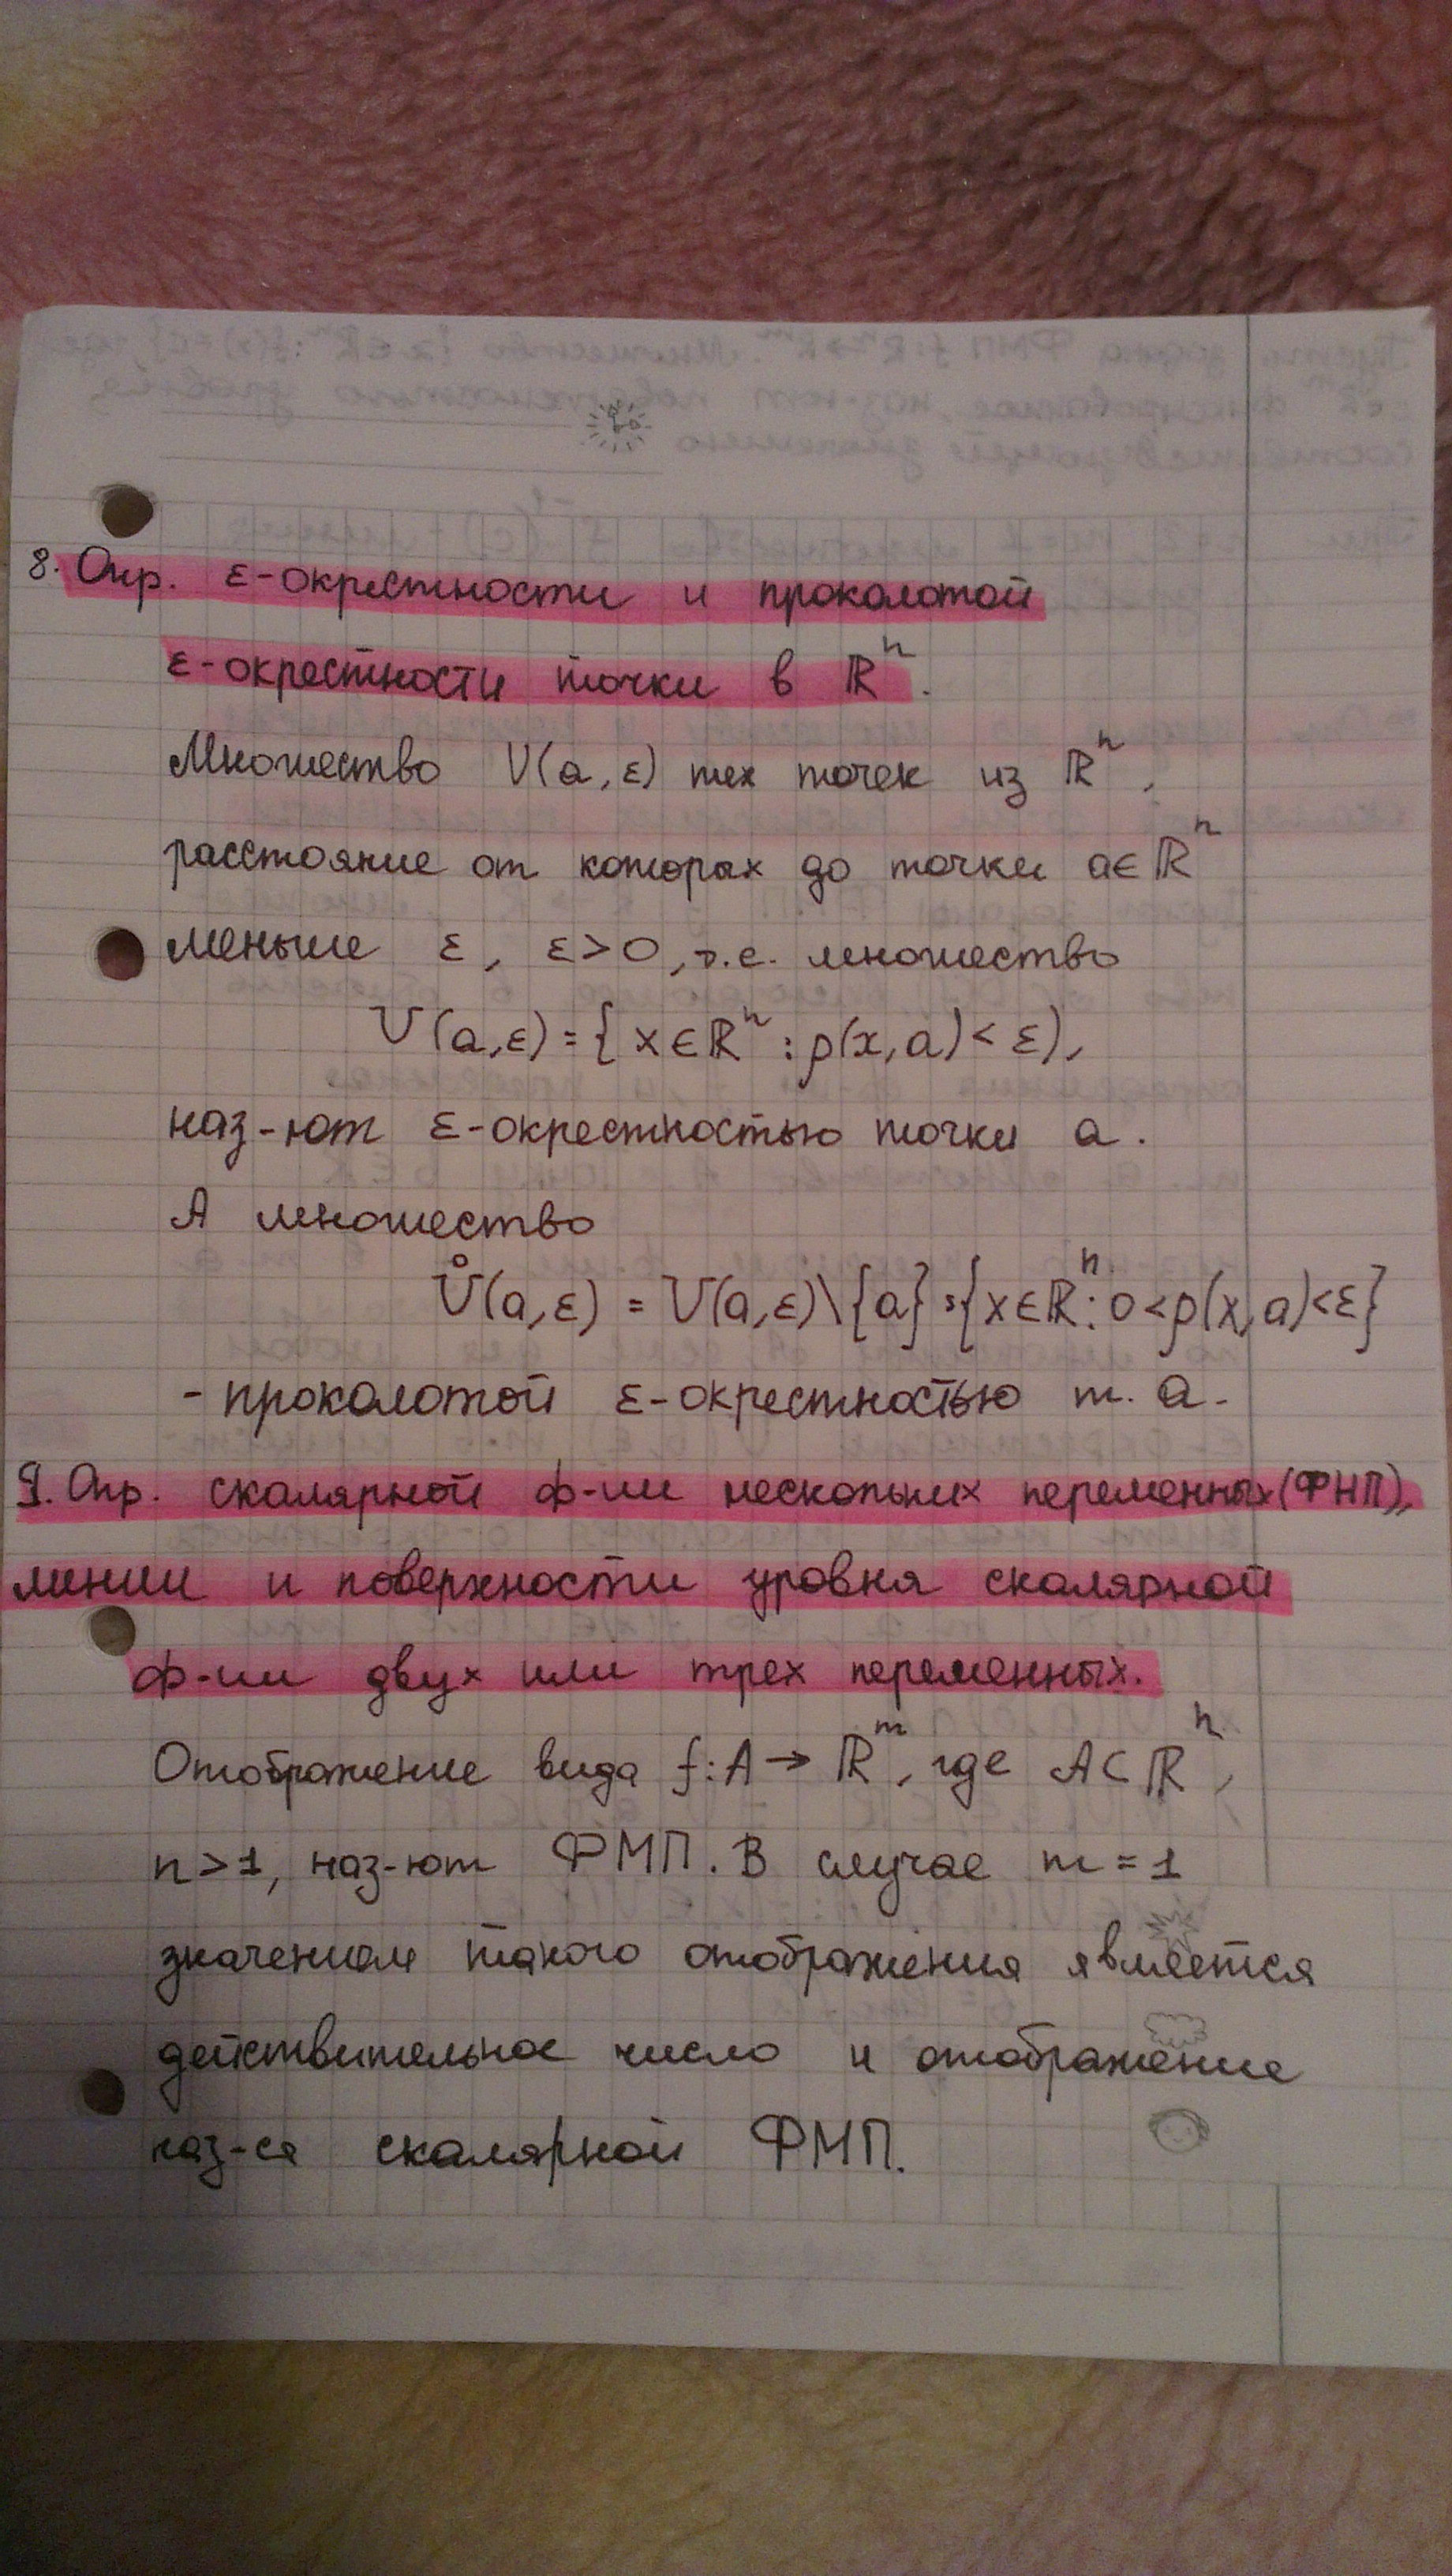 8. Опр. ε-окрестности и проколотой
ε-окрестности точки в ℝⁿ.
Множество U(a,ε) тех точек из ℝⁿ,
расстояние от которых до точки a∈ℝⁿ
меньше ε, ε>0, т.е. множество
U(a,ε)={x∈ℝⁿ:ρ(x,a)<ε),
наз-ют ε-окрестностью точки a.
А множество
Ů(a,ε) = U(a,ε)\{a}={x∈ℝⁿ:0<ρ(x,a)<ε}
-проколотой ε-окрестностью т. a.
9. Опр. скалярной ф-ии нескольких переменных(ФНП),
линии и поверхности уровня скалярной
ф-ии двух или трех переменных.
Отображение вида f:A→ℝᵐ, где A⊂ℝⁿ,
n>1, наз-ют ФМП. В случае m=1
значением такого отображения является
действительное число и отображение
наз-ся скалярной ФМП.